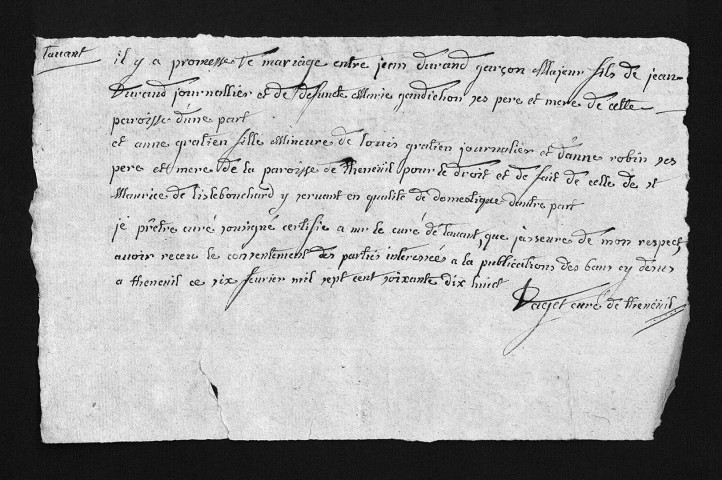 Tauant
il y a promesse de mariage entre jean durand garçon Majeur fils de jean
Durand journallier et de defuncte Marie gandichon ses pere et mere de cette
paroisse d'une part
et anne gratien fille Mineure de louis gratien journalier et d'anne robin ses
pere et mere de la paroisse de theneüil pour le droit et de fait de celle de st
Maurice de lislebouchard y servant en qualité de domestique d'autre part
je prêtre curé sousigné certifie a mr le curé de tauant que jasseure de mon respect
auoir receu le consentement des parties interessés a la publications des bans cy desus
a theneuil ce six feurier mil sept cent soixante dix huict
curé de theneüil